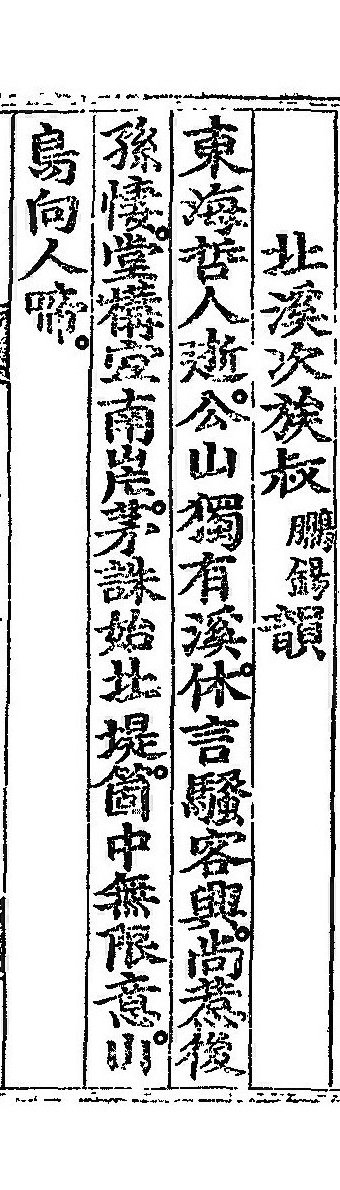 北溪次族叔鵬錫韻
東海哲人逝。公山獨有溪。休言騷客興。尚惹後
孫悽。堂構宜南岸。茅誅始北堤。箇中無限意。山
鳥向人啼。